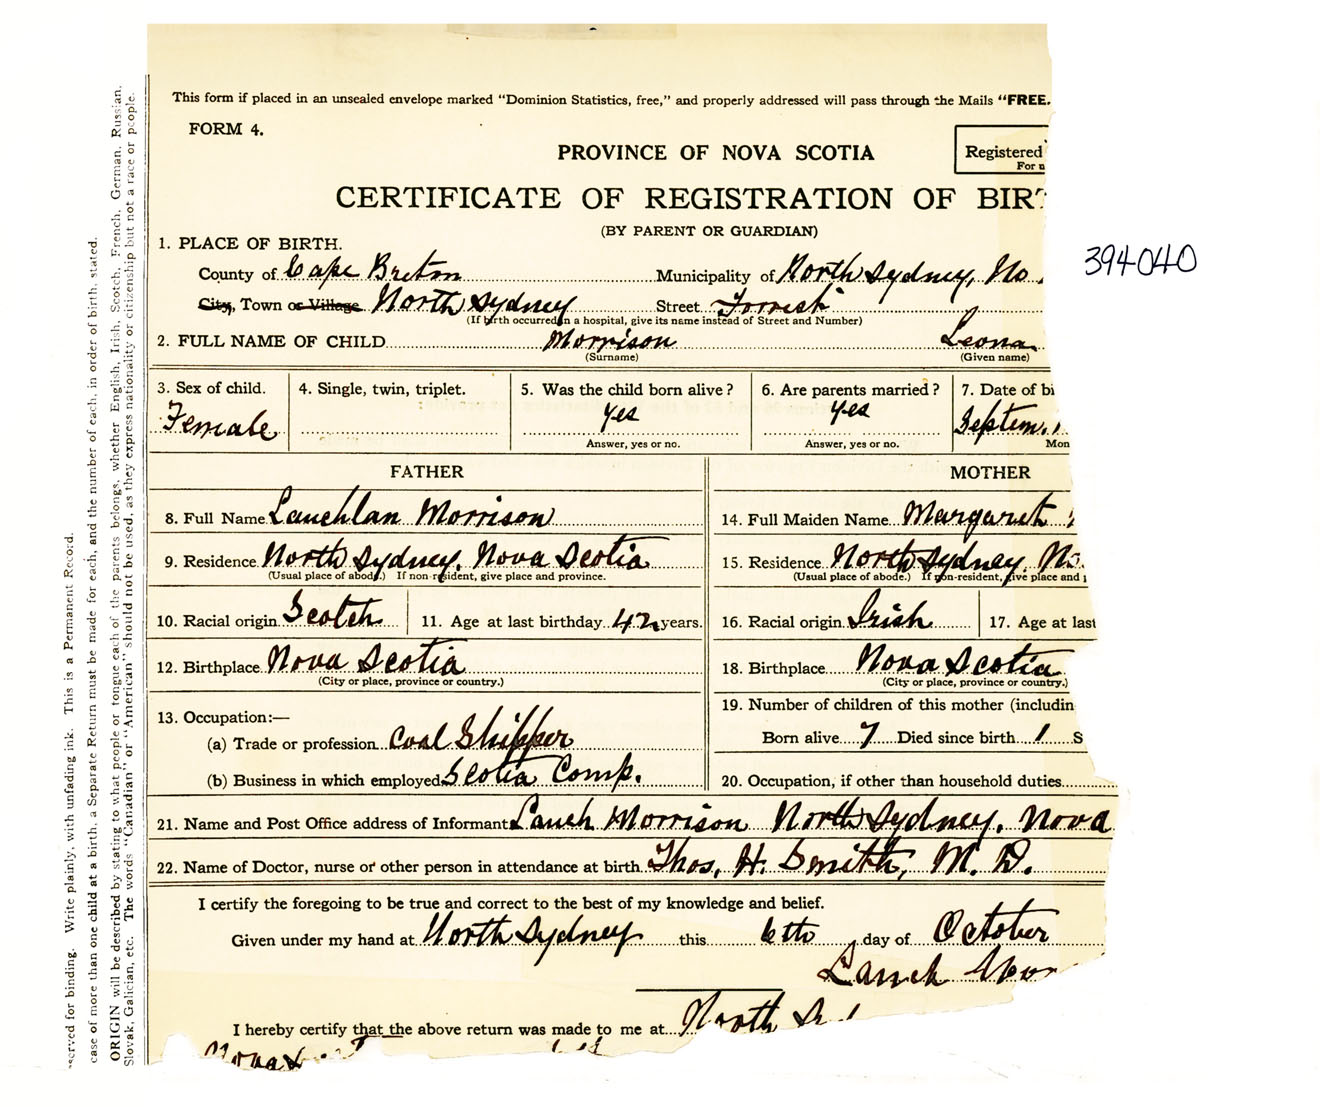 This form if placed in an unsealed envelope marked "Dominion Statistics, free," and properly addressed will pass through the Mails "FREE.
FORM 4.
PROVINCE OF NOVA SCOTIA
Registered
For u
CERTIFICATE OF REGISTRATION OF BIRT
(BY PARENT OR GUARDIAN)
394040
1. PLACE OF BIRTH.
County of Cape Breton Municipality of North Sydney, No
City, Town or Village North Sydney Street
(If birth occurred in a hospital, give its name instead of Street and Number)
2. FULL NAME OF CHILD Morrison Leona
(Surname) (Given name)
3. Sex of child. 4. Single, twin, triplet. 5. Was the child born alive? 6. Are parents married? 7. Date of bi
Female yes yes Septem.
Answer, yes or no. Answer, yes or no. Mon
FATHER MOTHER
8. Full Name Lauchlan Morrison 14. Full Maiden Name Margaret
9. Residence North Sydney, Nova Scotia 15. Residence North Sydney, No.
(Usual place of abode.) If non-resident, give place and province. (Usual place of abode.) If non-resident, give place and
10. Racial origin Scotch 11. Age at last birthday 42 years. 16. Racial origin Irish 17. Age at last
12. Birthplace Nova Scotia 18. Birthplace Nova Scotia
(City or place, province or country.) (City or place, province or country.)
13. Occupation:— 19. Number of children of this mother (includin
(a) Trade or profession Coal Shipper Born alive 7 Died since birth 1 S
(b) Business in which employed Scotia Comp. 20. Occupation, if other than household duties
21. Name and Post Office address of Informant Lauch Morrison North Sydney, Nova
22. Name of Doctor, nurse or other person in attendance at birth Thos. H. Smith, M. D.
I certify the foregoing to be true and correct to the best of my knowledge and belief.
Given under my hand at North Sydney this 6th day of October
Lauch Mor
I hereby certify that the above return was made to me at North Syd
Nova
served for binding. Write plainly, with unfading ink. This is a Permanent Record.
case of more than one child at a birth, a Separate Return must be made for each, and the number of each, in order of birth, stated.
ORIGIN will be described by stating to what people or tongue each of the parents belongs, whether English, Irish, Scotch, French, German, Russian,
Slovak, Galician, etc. The words "Canadian" or "American" should not be used, as they express nationality or citizenship but not a race or people.